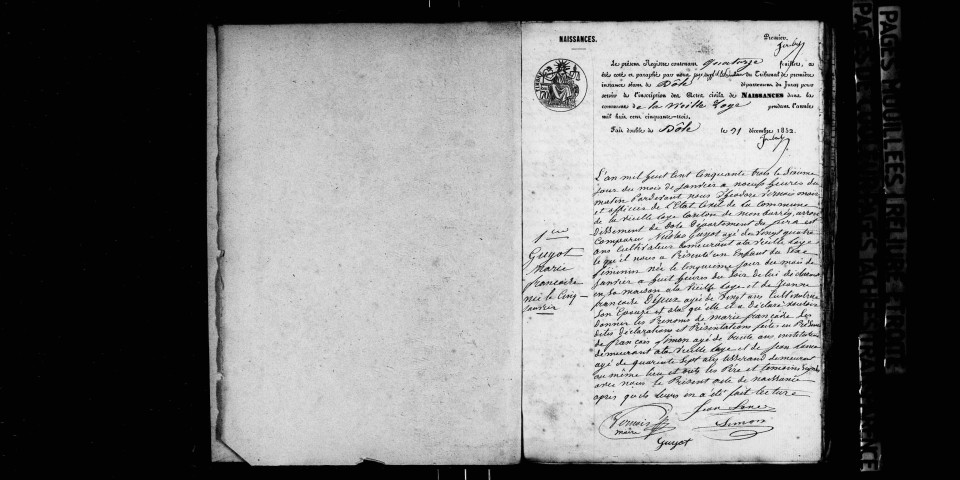 NAISSANCES.
Premier.
Le présent Registre contenant quatorze feuillets, a
été coté et paraphé par nous, du Tribunal de première
instance séant de Dôle département du Jura pour
servir de l'inscription des Actes civils de NAISSANCES dans la
commune de la Vieille Loye pendant l'année
mil huit cent cinquante-trois.
Fait double de Dôle le 31 décembre 1852.
L'an mil huit cent cinquante trois le sixieme
jour du mois de janvier a neuf heures du
matin Pardevant nous Théodore Vernois maire
et officier de l'Etat Civil de la Commune
de la vieille Loye Canton de monbarrey, arron
dissement de Dole Département du jura est
Comparu Nicolas Guyot agé de vingt quatre
ans Cultivateur demeurant ala vieille Loye
le qu'el nous a Présenté un Enfant du Sexe
féminin née le Cinquieme jour du mois de
janvier a huit heures du soir de lui
en sa maison ala vieille Loye et de Jeanne
francoise agée de vingt ans
son Epouse et ala qu'elle il a déclaré vouloir
donner les Prénoms de marie francoise les
dites déclarations et Présentations faites en
de francois Simon agé de trente ans instituteur
demeurant ala vieille Loye et de jean
agé de quarente sept ans tisserand demeurant
au même lieu et ont les Père et temoins signés
avec nous le Présent acte de naissance
apres qu'ils leurs en a été fait lecture
1ere
Guyot
marie
francoise
née le Cinq
janvier
Vernois
maire
Jean
Simon
Guyot
PAGES MOUILLEES